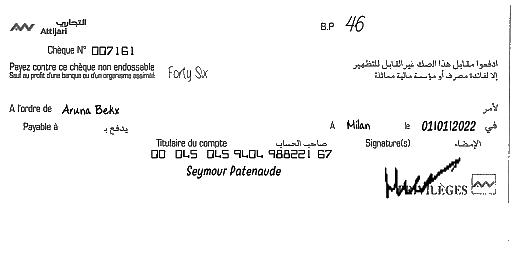 التجاري
Attijari
B.P 46
Chèque N° 007161
Payez contre ce chèque non endossable
Sauf au profit d'une banque ou d'un organisme assimilé
Forty Six
ادفعوا مقابل هذا الصك غير القابل للتظهير
إلا لفائدة مصرف أو مؤسسة مالية مماثلة
A l'ordre de Aruna Bekx لأمر
Payable à يدفع بـ A Milan le 01/01/2022 في
Titulaire du compte صاحب الحساب Signature(s) الإمضاء
00 045 045 9404 988221 67
Seymour Patenaude
PRIVILÈGES